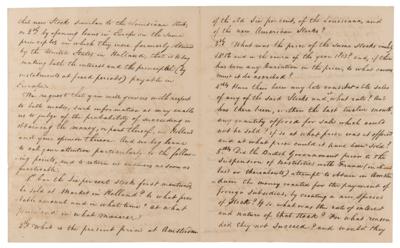 this new Stock similar to the Louisiana stock,
or 3d by opening loans in Europe on the same
principles in which they were formerly obtained
by the United States in Holland, that is to say
making both the interest and the principal (by
instalments at fixed periods) payable in
Europe.
We request that you will procure with respect
to both modes, such information as may enable
us to judge of the probability of succeeding in
obtaining the money, or part thereof, in Holland
and your opinion thereon. And we beg leave
to call your attention particularly to the follow-
ing points, and to return us answers as soon as
practicable.
1st Can the Six per cent Stock first mentioned
be sold at Market in Holland? to what pro-
bable amount and in what time? at what
price? and in what manner
2d What is the present price at Amsterdam
of the old Six per cent, of the Louisiana, and
of the new American Stocks?
3d What was the price of the same Stocks early
1812 and in the course of the year 1813? and, if there
has been any variation in the price, to what causes
must it be ascribed?
4th Have there been any late considerable sales
of any of the said Stocks and, what rate? But
has there been, within the last twelve month
any quantity offered for sale which could
not be sold? if so at what price was it offered
and at what price could it have been sold?
5th Did the United Government prior to the
suspension of hostilities with France (in
last or thereabouts) attempt to obtain in Amster-
dam the money wanted for the payment of
foreign subsidies, by creating a new species
of Stock? If so what was the rate of interest
and nature of that Stock? For what reason
did they not succeed? and would they